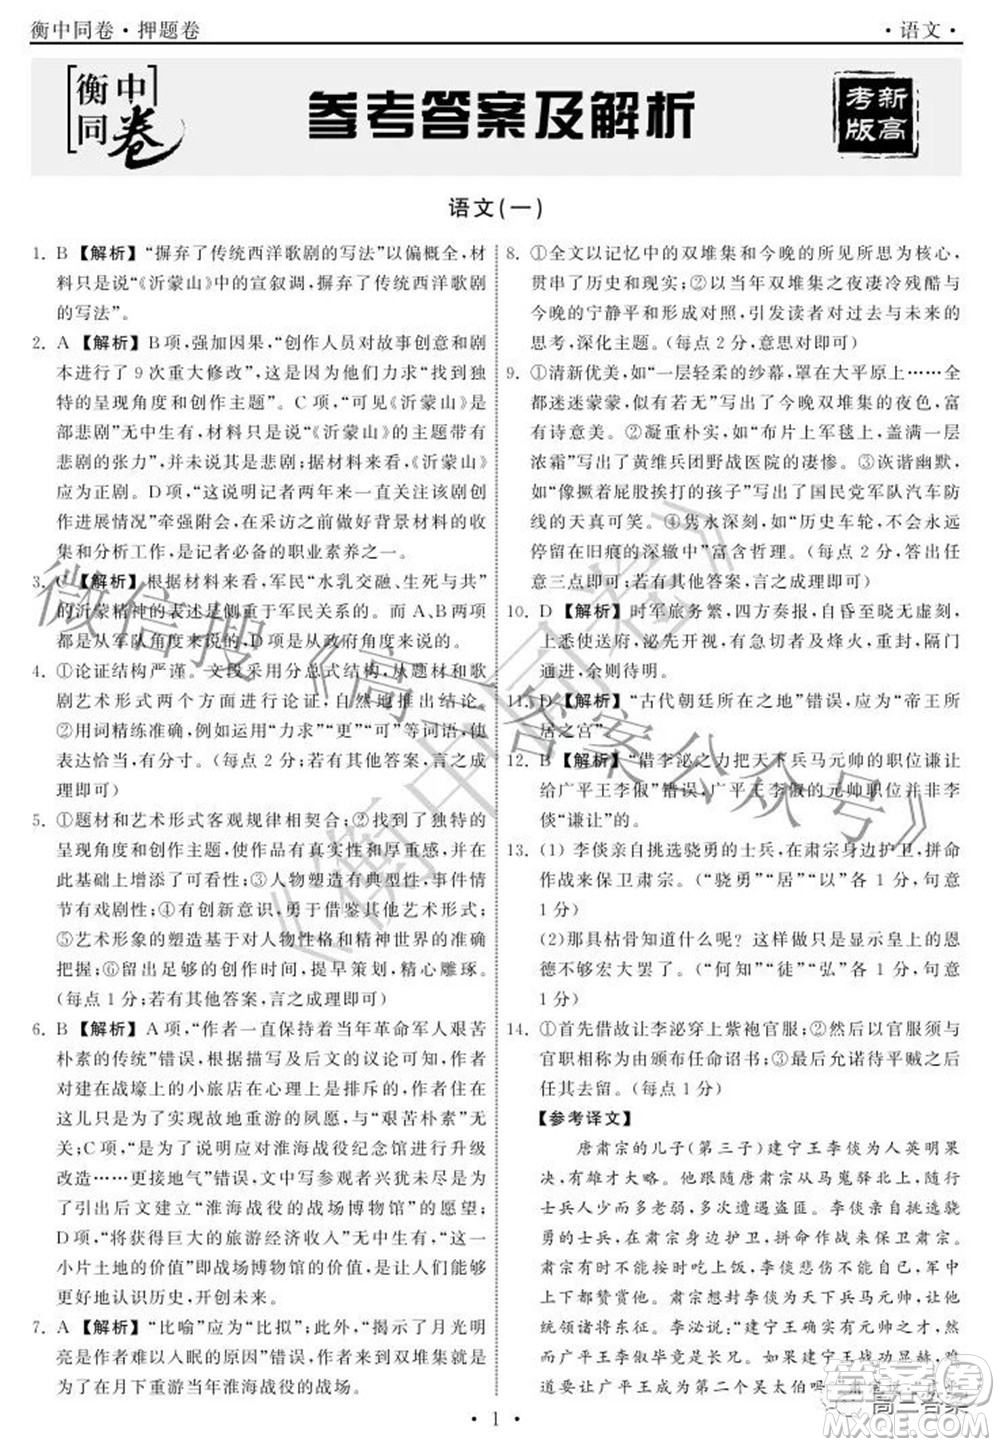 衡中同卷·押题卷
·语文·
衡中同卷
参考答案及解析
新高考版
语文(一)
1. B 【解析】“摒弃了传统西洋歌剧的写法”以偏概全,材
料只是说“《沂蒙山》中的宣叙调,摒弃了传统西洋歌剧
的写法”。
2. A 【解析】B项,强加因果,“创作人员对故事创意和剧
本进行了9次重大修改”,这是在力求“找到独
特的呈现角度和创作主题”。C项,“可见《沂蒙山》是一
部悲剧”无中生有,材料只是说“《沂蒙山》的主题带有
悲剧的张力”,并没说是悲剧;据材料来看《沂蒙山》
应为正剧。D项,“说明记者两年来一直关注该剧创
作进展情况”牵强附会,在采访之前做好背景材料的收
集和分析工作,是记者必备的职业素养之一。
3. C 【解析】根据材料来看,军民“水乳交融、生死与共”
的沂蒙精神的表述是侧重于军民关系的。而A、B两项
都是从军队角度来说的,D项是从政府角度来说的。
4. ①论证结构严谨。文段采用分总式结构,从题材和歌
剧艺术形式两个方面进行论证,自然地得出结论。
②用词精练准确。例如运用“力求”“更”“可”等词语,使
论述恰当,有分寸。(每点2分;如有其他答案,言之成
理即可)
5. ①题材和艺术形式客观规律相契合;②找到了独特的
呈现角度和创作主题,使作品有真实性和厚重感,引发
观众共鸣;③人物塑造有典型性,事件情
节有戏剧性;④有创新意识,勇于借鉴其他艺术形式;
⑤艺术形象的塑造基于对人物性格和精神世界的准确
把握;⑥留出充足的创作时间,提早策划,精心雕琢。
(每点1分;若有其他答案,言之成理即可)
6. B 【解析】A项,“作者一直保持着当年革命军人艰苦
朴素的传统”错误,根据描写及后文的议论可知,作者
对建在战壕上的小旅店在心理上是排斥的,作者住在
这儿只是为了实现故地重游的夙愿,与“艰苦朴素”无
关;C项,“是为了说明应对淮海战役纪念馆进行现代化
改造……更接地气”错误,文中写参观者兴犹未尽是为
引出后文建立“淮海战役的战场博物馆”的愿望;
D项,“将获得巨大的旅游经济价值”无中生有,“这一
小片土地的价值”即战场博物馆的价值,是让人们更好
地认识历史,开创未来。
7. A 【解析】“比喻”应为“比拟”;“揭示了月光明
亮是作者难以入眠的原因”错误,作者到双堆集就是为
了在月下重游当年淮海战役的战场。
8. ①全文以记忆中的双堆集和今晚的所见所思为核心,
贯串了历史和现实;②以当年双堆集之夜凄冷残酷与
今晚的宁静平和形成对照,引发读者对过去与未来的
思考,深化主题。(每点2分,意思对即可)
9. ①清新优美,如“一层轻柔的纱幕,罩在大平原上……全
都迷迷蒙蒙,似有若无”写出了今晚双堆集的夜色,富
有诗意美。②凝重朴实,如“布片上军毯上,盖满一层
浓霜”写出了黄维兵团野战医院的凄惨。③诙谐幽默,
如“像撅着屁股挨打的孩子”写出了国民党军队汽车防
线的天真可笑。④隽永深刻,如“历史车轮,不会永远
停留在旧痕的深辙中”富含哲理。(每点2分,答出任
意三点即可;若有其他答案,言之成理即可)
10. D 【解析】时军旅务繁,四方奏报,自昏至晓无虚刻,
上悉使送府,泌先开视,有急切者及烽火,重封,隔门
通进,余则待明。
11. D 【解析】“古代朝廷所在之地”错误,应为“帝王所
居之宫”。
12. B 【解析】“借李泌之力把天下兵马元帅的职位谦让
给广平王李俶”错误,广平王的元帅职位并非李
倓“谦让”的。
13. (1) 李倓亲自挑选骁勇的士兵,在肃宗身边护卫,拼命
作战来保卫肃宗。(“骁勇”“居”“以”各1分,句意
1分)
(2)那具枯骨知道什么呢?这样做只是显示皇上的恩
德不够宏大罢了。(“何知”“徒”“弘”各1分,句意
1分)
14. ①首先借故让李泌穿上紫袍官服;②然后以官服须与
官职相称为由颁布任命诏书;③最后允诺待平贼之日
任其去留。(每点1分)
【参考译文】
唐肃宗的儿子(第三子)建宁王李倓为人英明果
决,有雄才大略。他跟随唐肃宗从马嵬驿北上,随行
士兵人少且多老弱,多次遭遇盗匪。李倓亲自挑选骁
勇的士兵,在肃宗身边护卫,拼命作战来保卫肃宗。
肃宗有时过了时间还没吃饭,李倓悲泣不已,军中
都赞赏他。肃宗想封李倓为天下兵马元帅,让他统领
诸将东征。李泌说:“建宁王确实有元帅之才;
然而广平王是兄长。如果建宁王战功卓著,
难道让广平王成为第二个吴太伯吗?”肃宗说:“广
·1·
微信搜《高三答案公众号》
《衡中同卷》
高三答案
答案圈
MXQE.COM